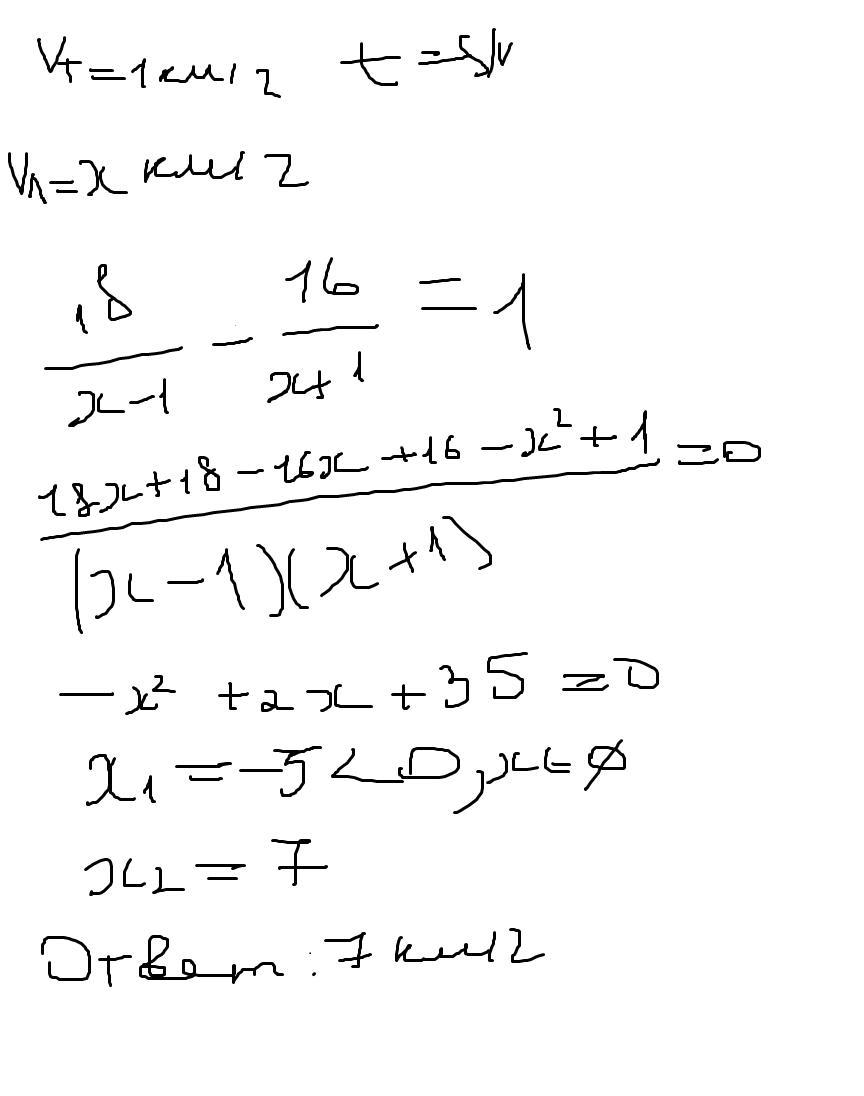 Vт=1 км/ч t=S/V
Vл=x км/ч
18/(x-1) - 16/(x+1) = 1
(18x+18-16x+16-x²+1)/((x-1)(x+1)) =0
-x²+2x+35=0
x₁=-5<0, x∈∅
x₂=7
Ответ: 7 км/ч